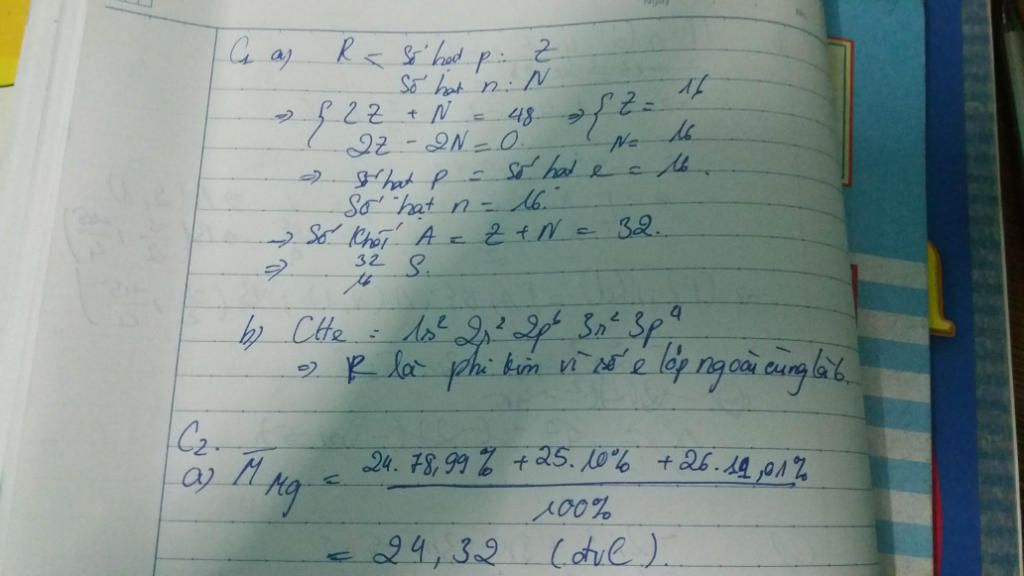 C1 a) R < Số hạt p : Z
Số hạt n : N
=> { 2Z + N = 48 => { Z = 16
2Z - 2N = 0 N = 16
=> Số hạt p = Số hạt e = 16.
Số hạt n = 16.
-> Số khối A = Z + N = 32.
=> 32 16 S.
b) CHe : 1s² 2s² 2p⁶ 3s² 3p⁴
=> R là phi kim vì số e lớp ngoài cùng là 6.
C2.
a) M̅ Mg = 24. 78,99% + 25. 10% + 26. 11,01%
100%
= 24,32 (đvC).